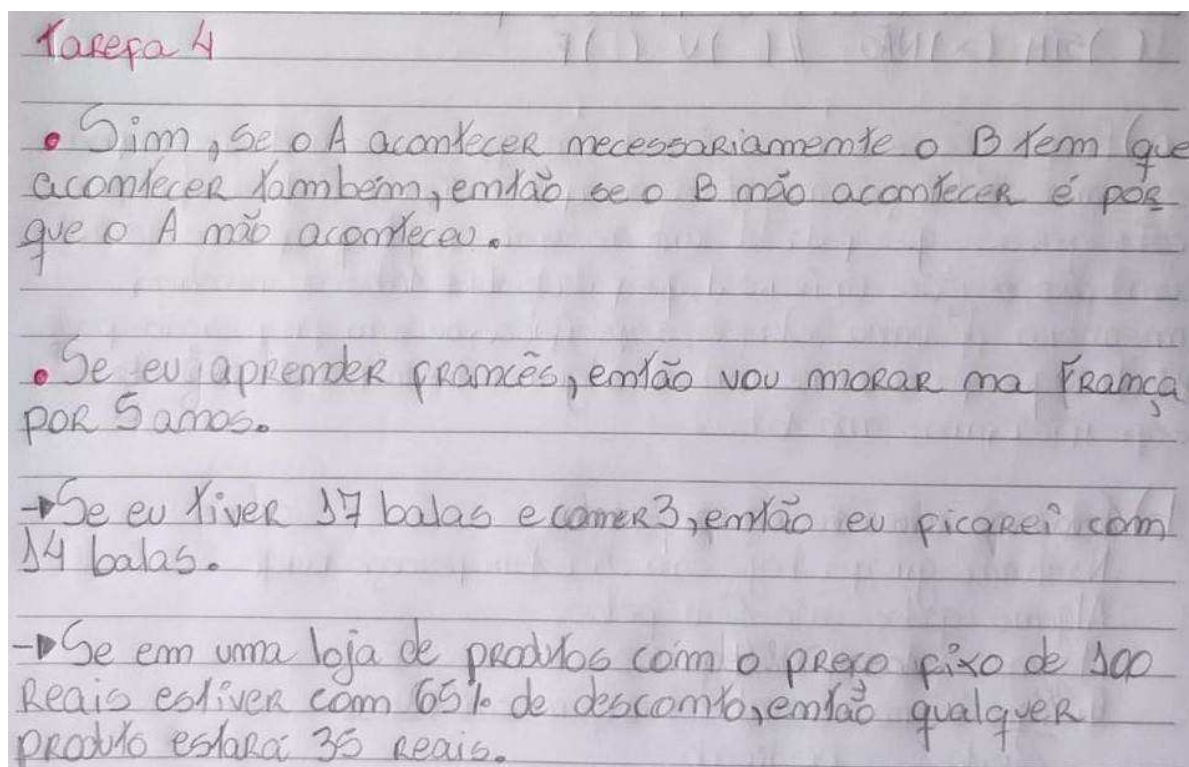 Tarefa 4
• Sim, se o A acontecer necessariamente o B tem que
acontecer também, então se o B não acontecer é por
que o A não aconteceu.
• Se eu aprender francês, então vou morar na França
por 5 anos.
→ Se eu tiver 17 balas e comer 3, então eu ficarei com
14 balas.
→ Se em uma loja de produtos com o preço fixo de 100
Reais estiver com 65% de desconto, então qualquer
produto estará 35 reais.